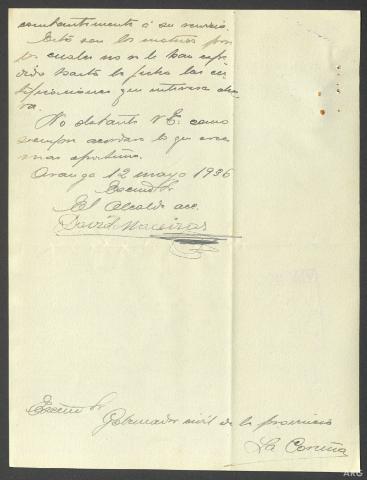 a su servicio.
Estos son los motivos por
los cuales no se le han expe-
dido hasta la fecha las cer-
tificaciones que interesa aho-
ra.
No obstante V.E. como
siempre acordara lo que crea
mas oportuno.
Aranga 12 mayo 1936
Excmo Sr
El Alcalde acc.
David Maceiras
Excmo Sr
Gobernador civil de la provincia
La Coruña
ARG